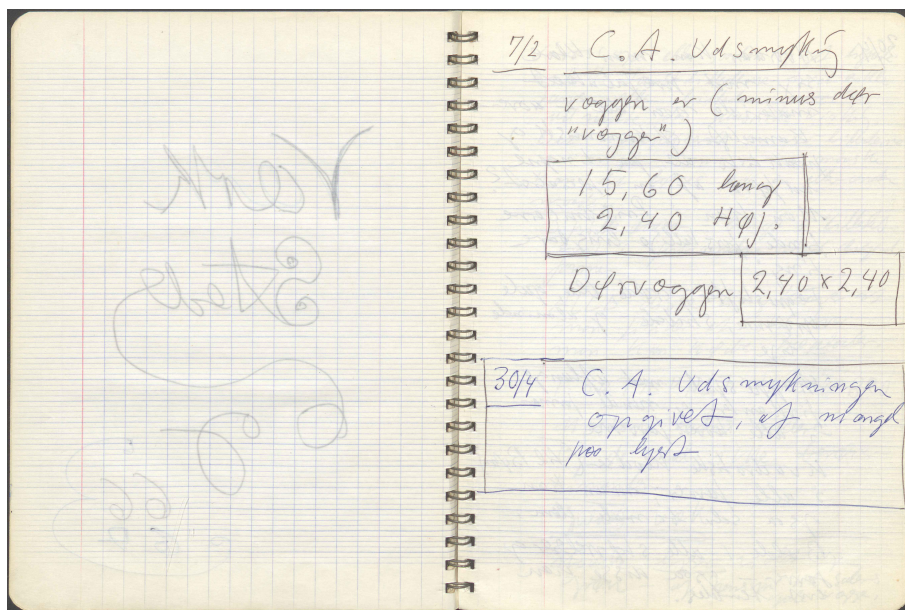 7/2 C. A. Udsmykning
voggen er (minus dør
"voggen")
15,60 lang
2,40 Høj.
Dørvoggen 2,40 x 2,40
30/4 C. A. Udsmykningen
opgivet, af mangel
paa lyst